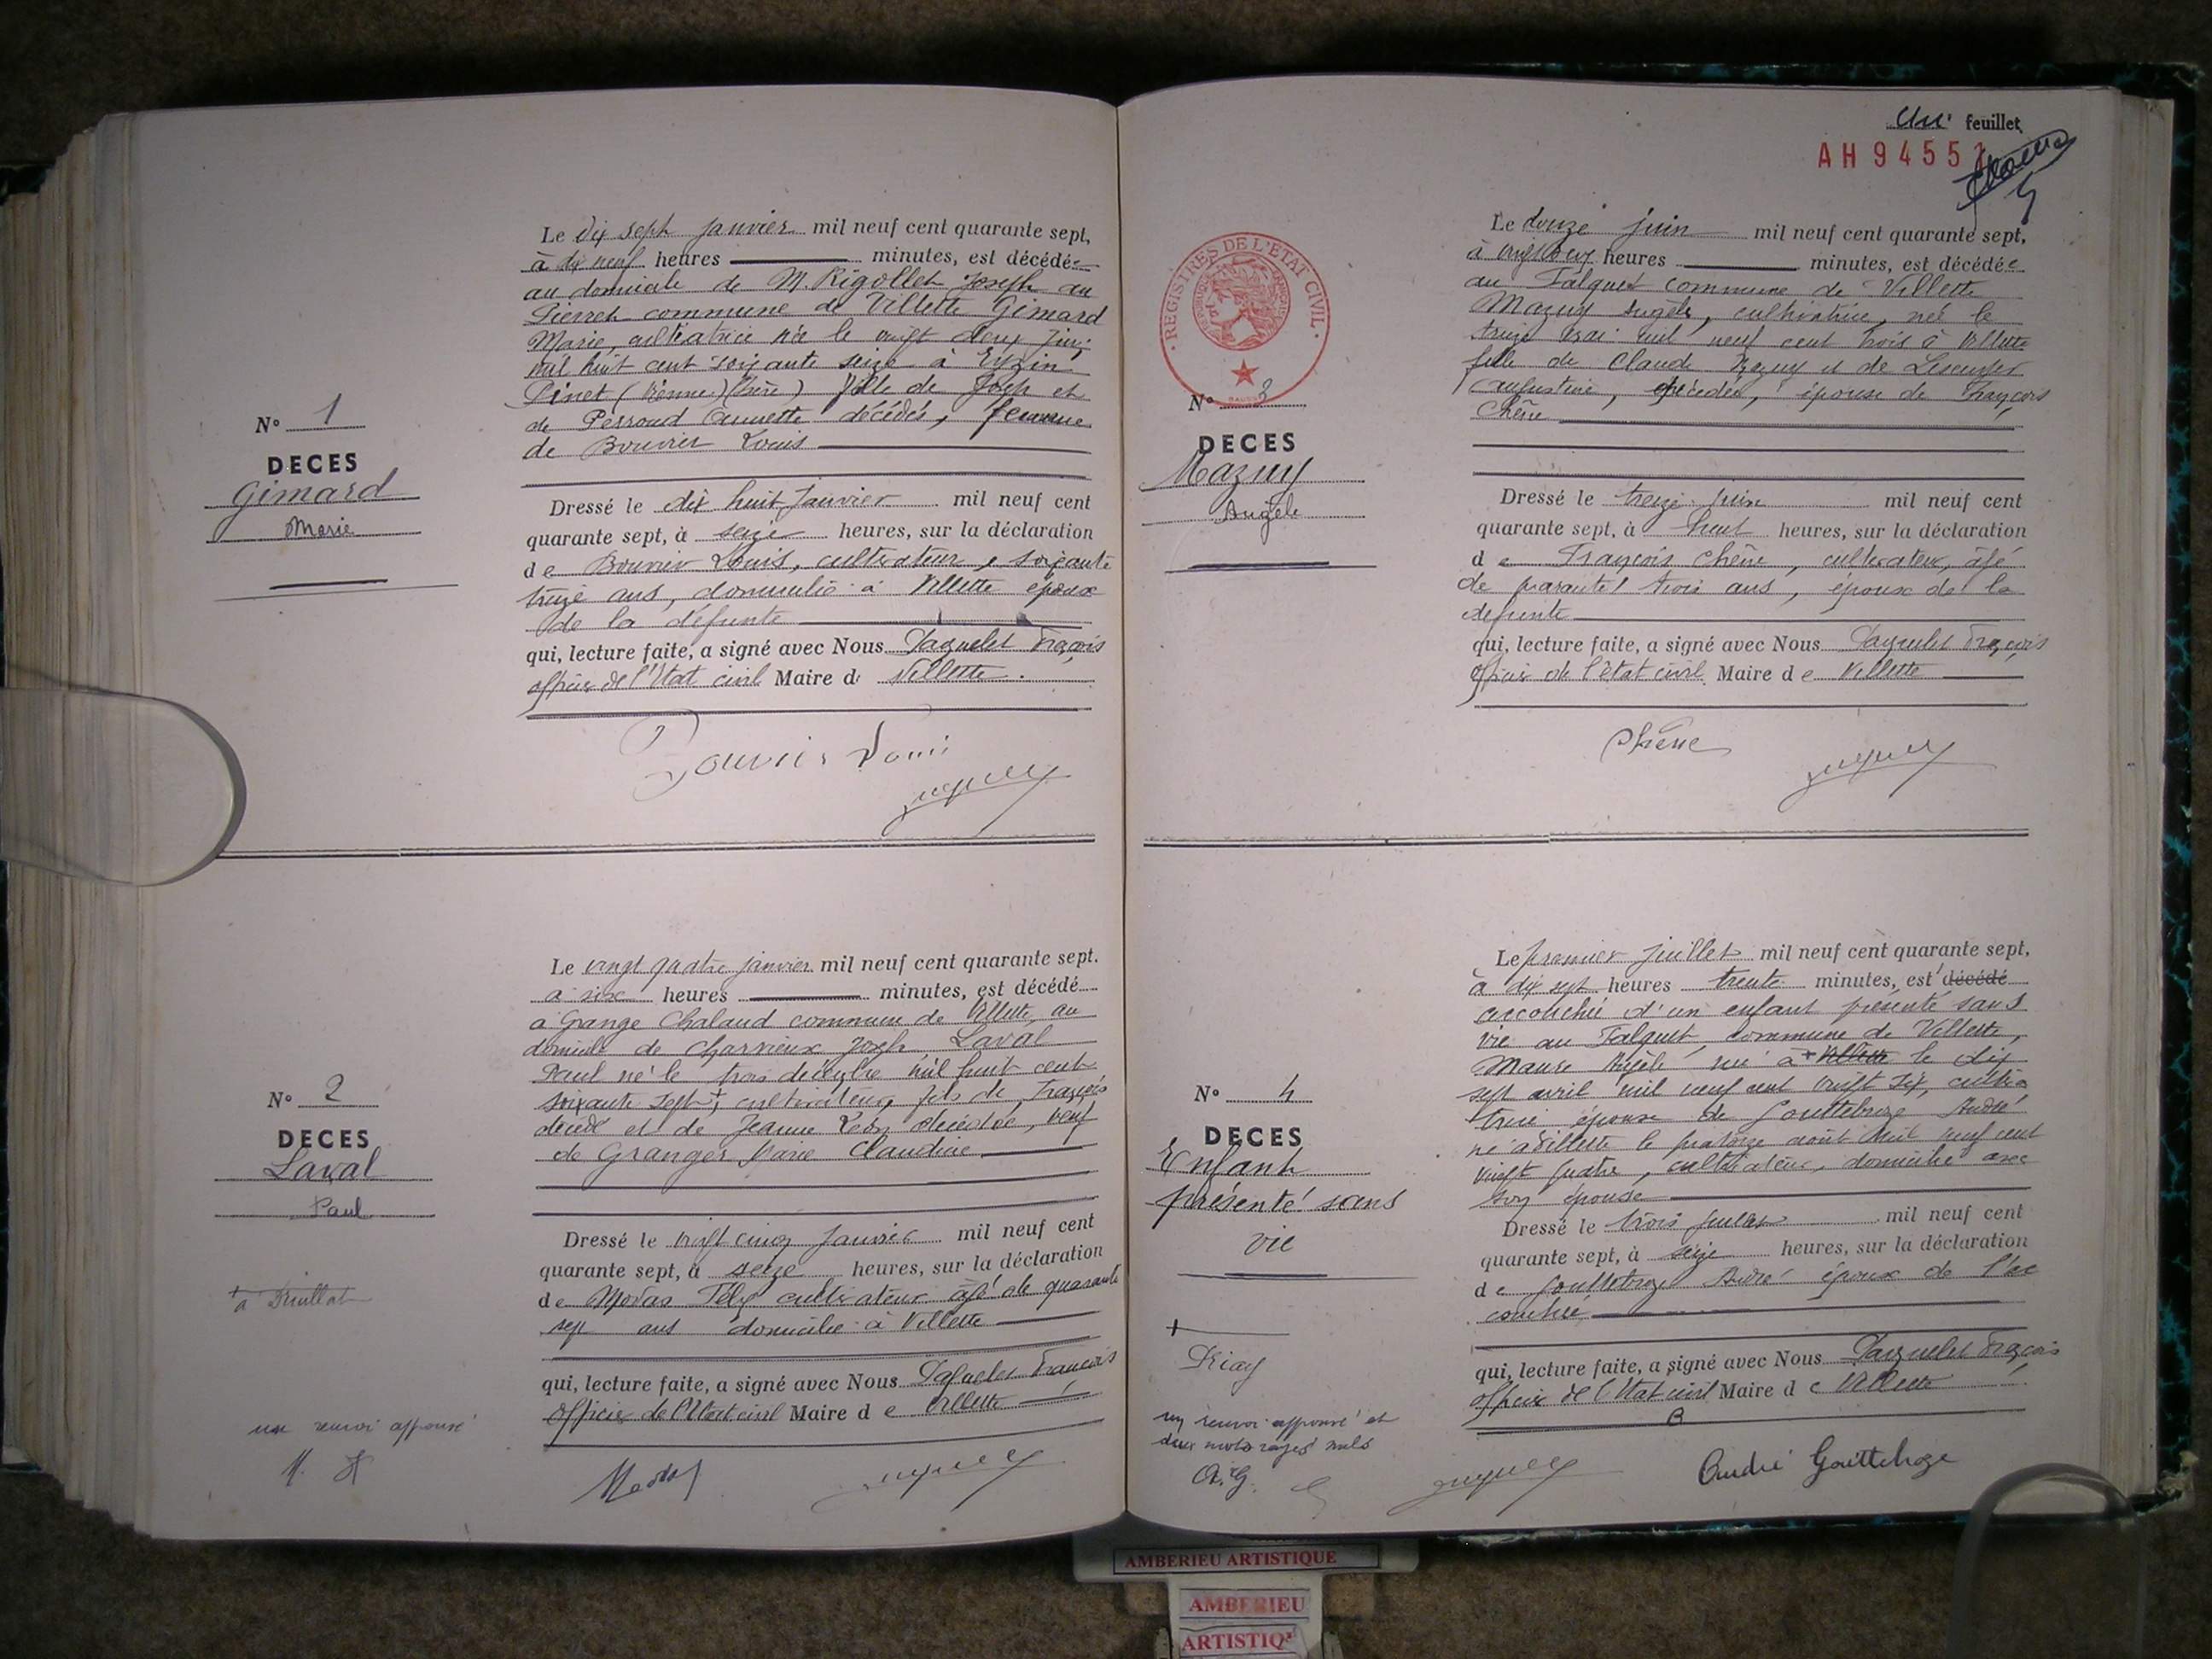 N° 1
DECES
Gimard
Marie
Le dix sept janvier mil neuf cent quarante sept,
à dix neuf heures minutes, est décédée
au domicile de M. Rigollet Joseph au
Pierret commune de Villette Gimard
Marie, cultivatrice née le vingt deux juin
mil huit cent soixante seize à Eyzin
Pinet (Vienne) (Isère) fille de Joseph et
de Perroud décédés, femme
de Bouvier Louis
Dressé le dix huit janvier mil neuf cent
quarante sept, à seize heures, sur la déclaration
de Bouvier Louis, cultivateur, soixante
treize ans, domicilié à Villette époux
de la défunte
qui, lecture faite, a signé avec Nous Paquelet François
officier de l'Etat civil Maire de Villette.
Bouvier Louis
N° 2
DECES
Laval
Paul
+ à Druillat
un renvoi approuvé
Le vingt quatre janvier mil neuf cent quarante sept.
à six heures minutes, est décédé
à Grange Chaland commune de Villette, au
domicile de Charvieux Joseph Laval
Paul né le trois décembre mil huit cent
soixante sept +, cultivateur, fils de François
décédé et de Jeanne Léon décédée, veuf
de Granger Marie Claudine
Dressé le vingt cinq janvier mil neuf cent
quarante sept, à seize heures, sur la déclaration
de Modas Félix cultivateur âgé de quarante
sept ans domicilié à Villette
qui, lecture faite, a signé avec Nous Paquelet François
Officier de l'Etat civil Maire de Villette
Un feuillet
AH 94551
REGISTRES DE L'ETAT CIVIL
N° 3
DECES
Mazuy
Angèle
Le douze juin mil neuf cent quarante sept,
à vingt deux heures minutes, est décédée
au Falquet commune de Villette
Mazuy Angèle, cultivatrice, née le
treize mai mil neuf cent trois à Villette
fille de Claude Mazuy et de
Augustine, décédés, épouse de François
Chêne
Dressé le treize juin mil neuf cent
quarante sept, à huit heures, sur la déclaration
de François Chêne, cultivateur, âgé
de quarante trois ans, époux de la
défunte
qui, lecture faite, a signé avec Nous Paquelet François
officier de l'état civil Maire de Villette
Chêne
N° 4
DECES
Enfant
présenté sans
vie
+
Priay
un renvoi approuvé et
deux mots rayés nuls
A.G.
Le premier juillet mil neuf cent quarante sept,
à dix sept heures trente minutes, est décédé
accouchée d'un enfant présenté sans
vie au Falquet, commune de Villette,
Angèle née à + Villette le dix
sept avril mil neuf cent vingt six, cultiva
trice épouse de Gouttebroze André
né à Villette le quatorze août mil neuf cent
vingt quatre, cultivateur, domicilié avec
son épouse
Dressé le trois juillet mil neuf cent
quarante sept, à seize heures, sur la déclaration
de Gouttebroze André époux de l'ac
couchée
qui, lecture faite, a signé avec Nous Paquelet François
officier de l'Etat civil Maire de Villette
André Gouttebroze
AMBERIEU ARTISTIQUE
AMBERIEU
ARTISTIQ